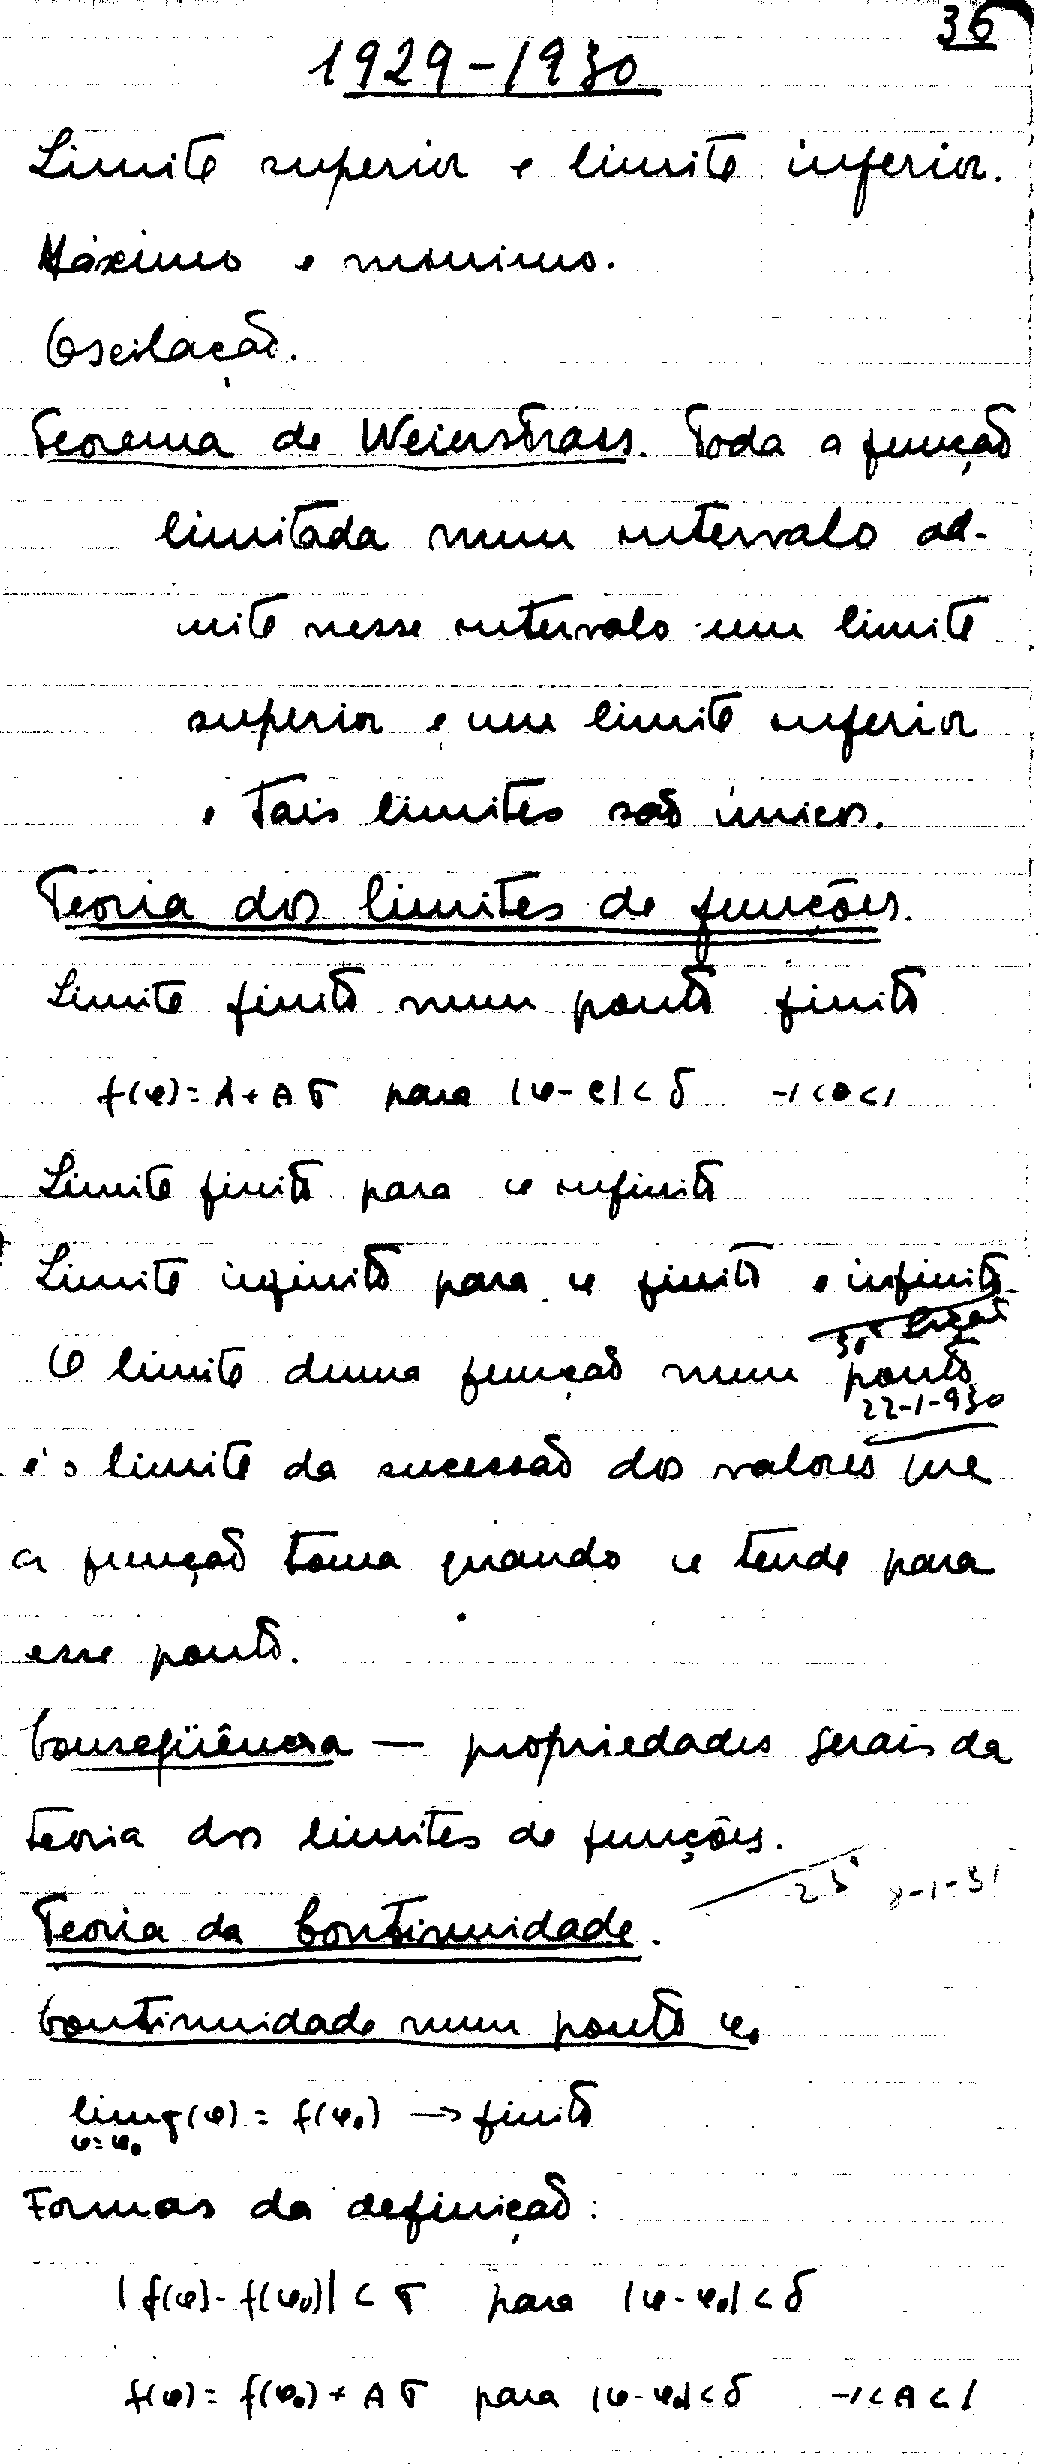 36
1929-1930
Limite superior e limite inferior.
Máximo e mínimo.
Oscilação.
Teorema de Weierstrass. Toda a função
limitada num intervalo ad-
mite nesse intervalo um limite
superior e um limite inferior
e tais limites são únicos.
Teoria dos limites de funções.
Limite finito num ponto finito
f(φ) = A + A σ para |φ - c| < δ -1 < θ < 1
Limite finito para φ infinito
Limite infinito para φ finito e infinito
30ª lição
O limite duma função num ponto
22-1-930
é o limite da sucessão dos valores que
a função toma quando φ tende para
esse ponto.
Conseqüência — propriedades gerais da
teoria dos limites de funções.
23ª 8-1-31
Teoria da Continuidade.
Continuidade num ponto φ₀
lim f(φ) = f(φ₀) → finito
φ=φ₀
Formas da definição:
|f(φ) - f(φ₀)| < σ para |φ - φ₀| < δ
f(φ) = f(φ₀) + A σ para |φ - φ₀| < δ -1 < A < 1